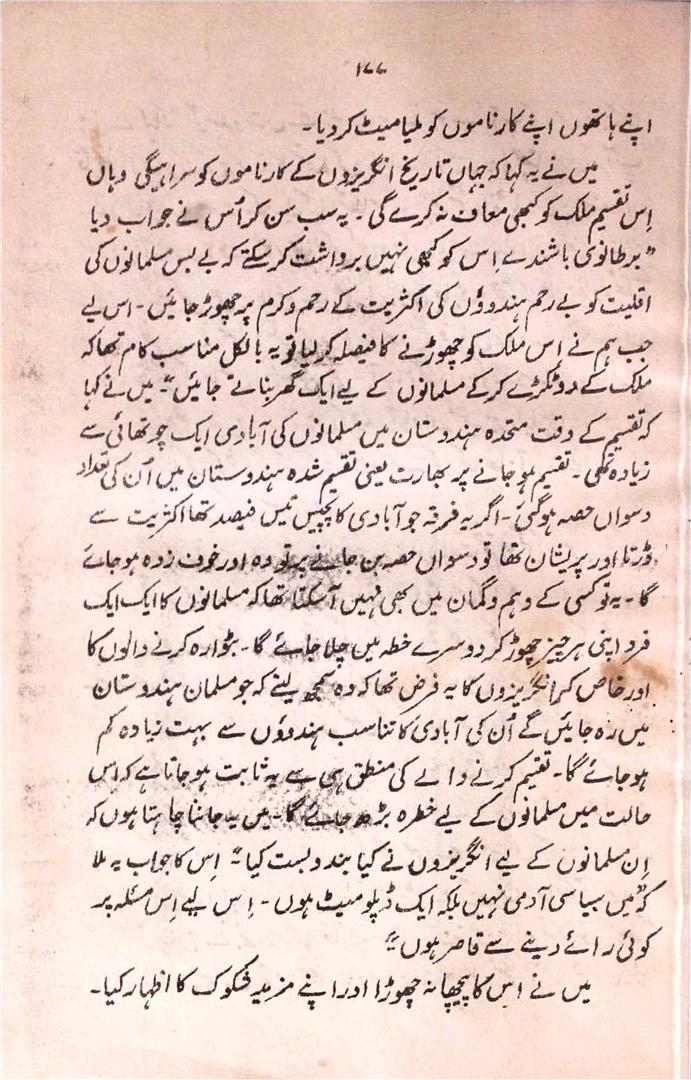 ۱۷۷
اپنے ہاتھوں اپنے کارناموں کو ملیامیٹ کردیا۔
میں نے یہ کہا کہ جہاں تاریخ انگریزوں کے کارناموں کو سراہیگی وہاں
اِس تقسیم ملک کو کبھی معاف نہ کرے گی ۔ یہ سب سن کر اُس نے جواب دیا
”برطانوی باشندے اِس کو کبھی نہیں برداشت کرسکتے کہ بے بس مسلمانوں کی
اقلیت کو بے رحم ہندوؤں کی اکثریت کے رحم و کرم پر چھوڑ جائیں ۔ اس لیے
جب ہم نے اِس ملک کو چھوڑنے کا فیصلہ کرلیا تو یہ بالکل مناسب کام تھا کہ
ملک کے دو ٹکڑے کرکے مسلمانوں کے لیے ایک گھر بناتے جائیں“۔ میں نے کہا
کہ تقسیم کے وقت متحدہ ہندوستان میں مسلمانوں کی آبادی ایک چوتھائی سے
زیادہ تھی ۔ تقسیم ہو جانے پر بھارت یعنی تقسیم شدہ ہندوستان میں اُن کی تعداد
دسواں حصہ ہوگئی ۔ اگر یہ فرقہ جو آبادی کا پچیس تیس فیصد تھا اکثریت سے
ڈرتا اور پریشان تھا تو دسواں حصہ بن جانے پر تو وہ اور خوف زدہ ہو جائے
گا ۔ یہ تو کسی کے وہم و گمان میں بھی نہیں آسکتا تھا کہ مسلمانوں کا ایک ایک
فرد اپنی ہر چیز چھوڑ کر دوسرے خطہ میں چلا جائے گا ۔ بٹوارہ کرنے والوں کا
اور خاص کر انگریزوں کا یہ فرض تھا کہ وہ سمجھ لیتے کہ جو مسلمان ہندوستان
میں رہ جائیں گے اُن کی آبادی کا تناسب ہندوؤں سے بہت زیادہ کم
ہو جائے گا ۔ تقسیم کرنے والے کی منطق ہی سے یہ ثابت ہو جاتا ہے کہ اِس
حالت میں مسلمانوں کے لیے خطرہ بڑھ جائے گا ۔ میں یہ جاننا چاہتا ہوں کہ
اِن مسلمانوں کے لیے انگریزوں نے کیا بندوبست کیا“ اِس کا جواب یہ ملا
کہ ”میں سیاسی آدمی نہیں بلکہ ایک ڈپلومیٹ ہوں ۔ اِس لیے اِس مسئلہ پر
کوئی رائے دینے سے قاصر ہوں“۔
میں نے اس کا پیچھا نہ چھوڑا اور اپنے مزید شکوک کا اظہار کیا ۔